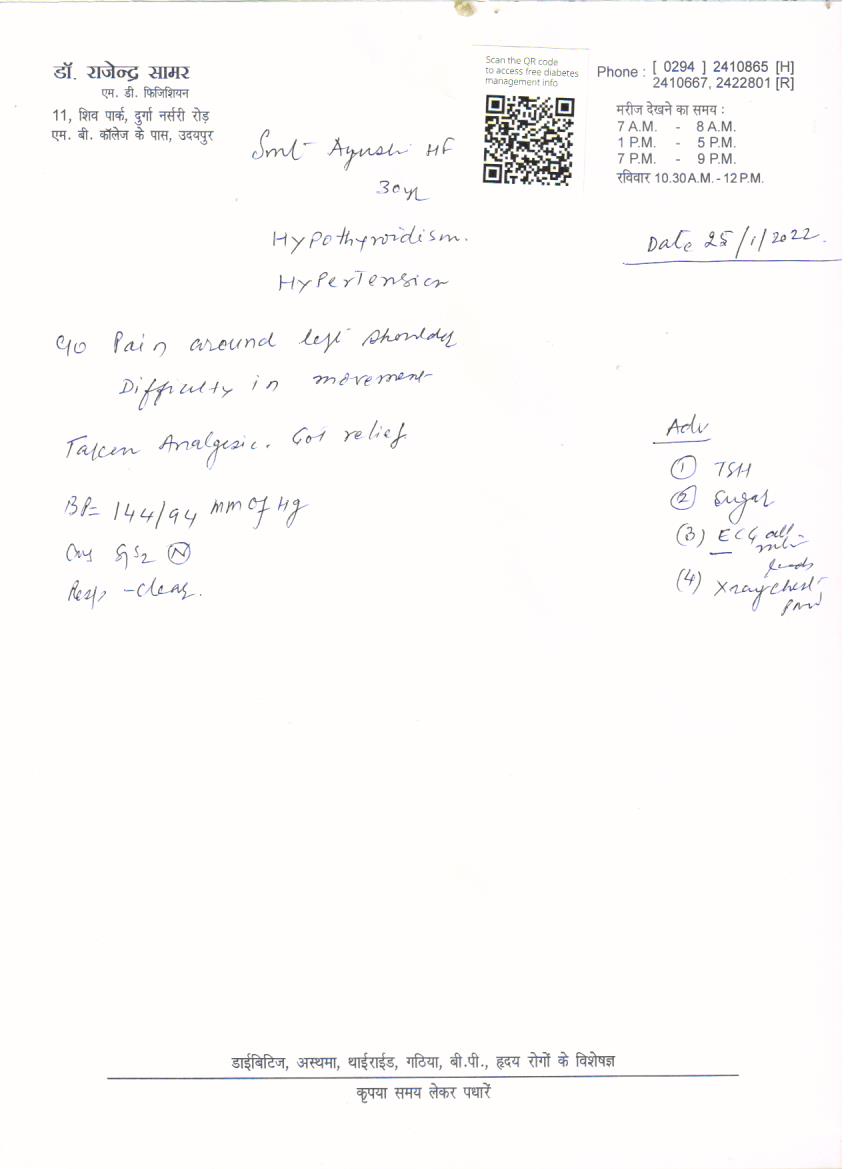 डॉ. राजेन्द्र सामर
एम. डी. फिजिशियन
11, शिव पार्क, दुर्गा नर्सरी रोड़
एम. बी. कॉलेज के पास, उदयपुर
Scan the QR code
to access free diabetes
management info
Phone : [ 0294 ] 2410865 [H]
2410667, 2422801 [R]
मरीज देखने का समय :
7 A.M. - 8 A.M.
1 P.M. - 5 P.M.
7 P.M. - 9 P.M.
रविवार 10.30 A.M. - 12 P.M.
Smt Ayushi HF
30yr
Date 25/1/2022.
Hypothyroidism.
Hypertension
C/o Pain around left shoulder
Difficulty in movement
Taken Analgesic. Got relief
BP= 144/94 mm of Hg
S1S2 (N)
Resp - clear.
Adv
(1) TSH
(2) Sugar
(3) ECG all
leads
(4) Xray chest
डाईबिटिज, अस्थमा, थाईराईड, गठिया, बी.पी., हृदय रोगों के विशेषज्ञ
कृपया समय लेकर पधारें